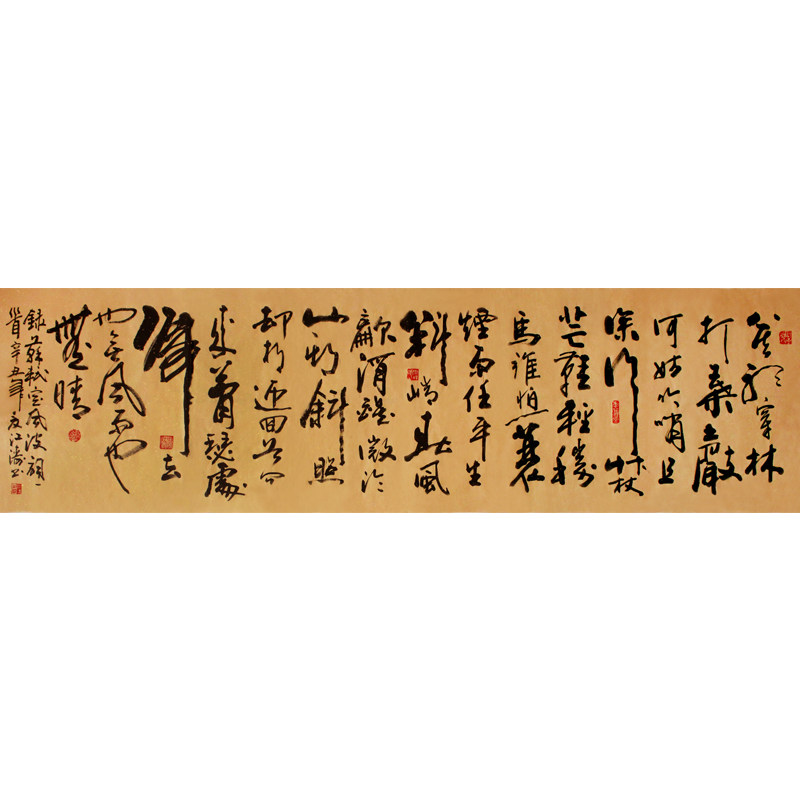 莫聽穿林
打葉聲
何妨吟嘯且
徐行竹杖
芒鞋輕勝
馬誰怕蓑
煙雨任平生
料峭春風
吹酒醒微冷
山頭斜照
却相迎回首向
來蕭瑟處
歸去
也無風雨也
無晴
錄蘇軾定風波詞一
首辛丑年江濤書